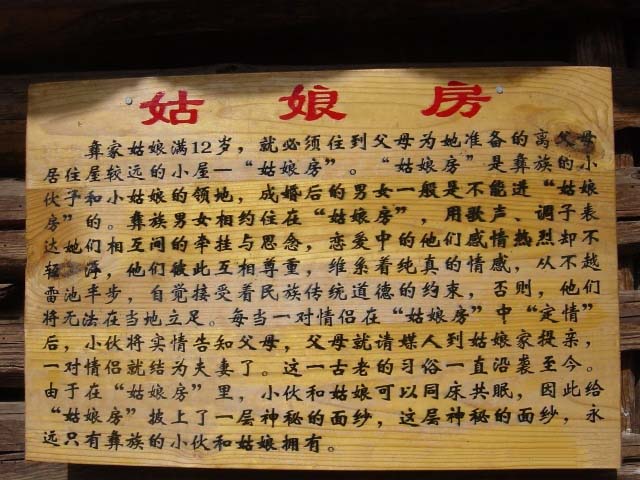 姑娘房
彝家姑娘满12岁，就必须住到父母为她准备的离父母
居住屋较远的小屋—“姑娘房”。“姑娘房”是彝族的小
伙子和小姑娘的领地，成婚后的男女一般是不能进“姑娘
房”的。彝族男女相约住在“姑娘房”，用歌声、调子表
达她们相互间的牵挂与思念，恋爱中的他们感情热烈却不
轻浮，他们彼此互相尊重，维系着纯真的情感，从不越
雷池半步，自觉接受着民族传统道德的约束，否则，他们
将无法在当地立足。每当一对情侣在“姑娘房”中“定情”
后，小伙将实情告知父母，父母就请媒人到姑娘家提亲，
一对情侣就结为夫妻了。这一古老的习俗一直沿袭至今。
由于在“姑娘房”里，小伙和姑娘可以同床共眠，因此给
“姑娘房”披上了一层神秘的面纱，这层神秘的面纱，永
远只有彝族的小伙和姑娘拥有。